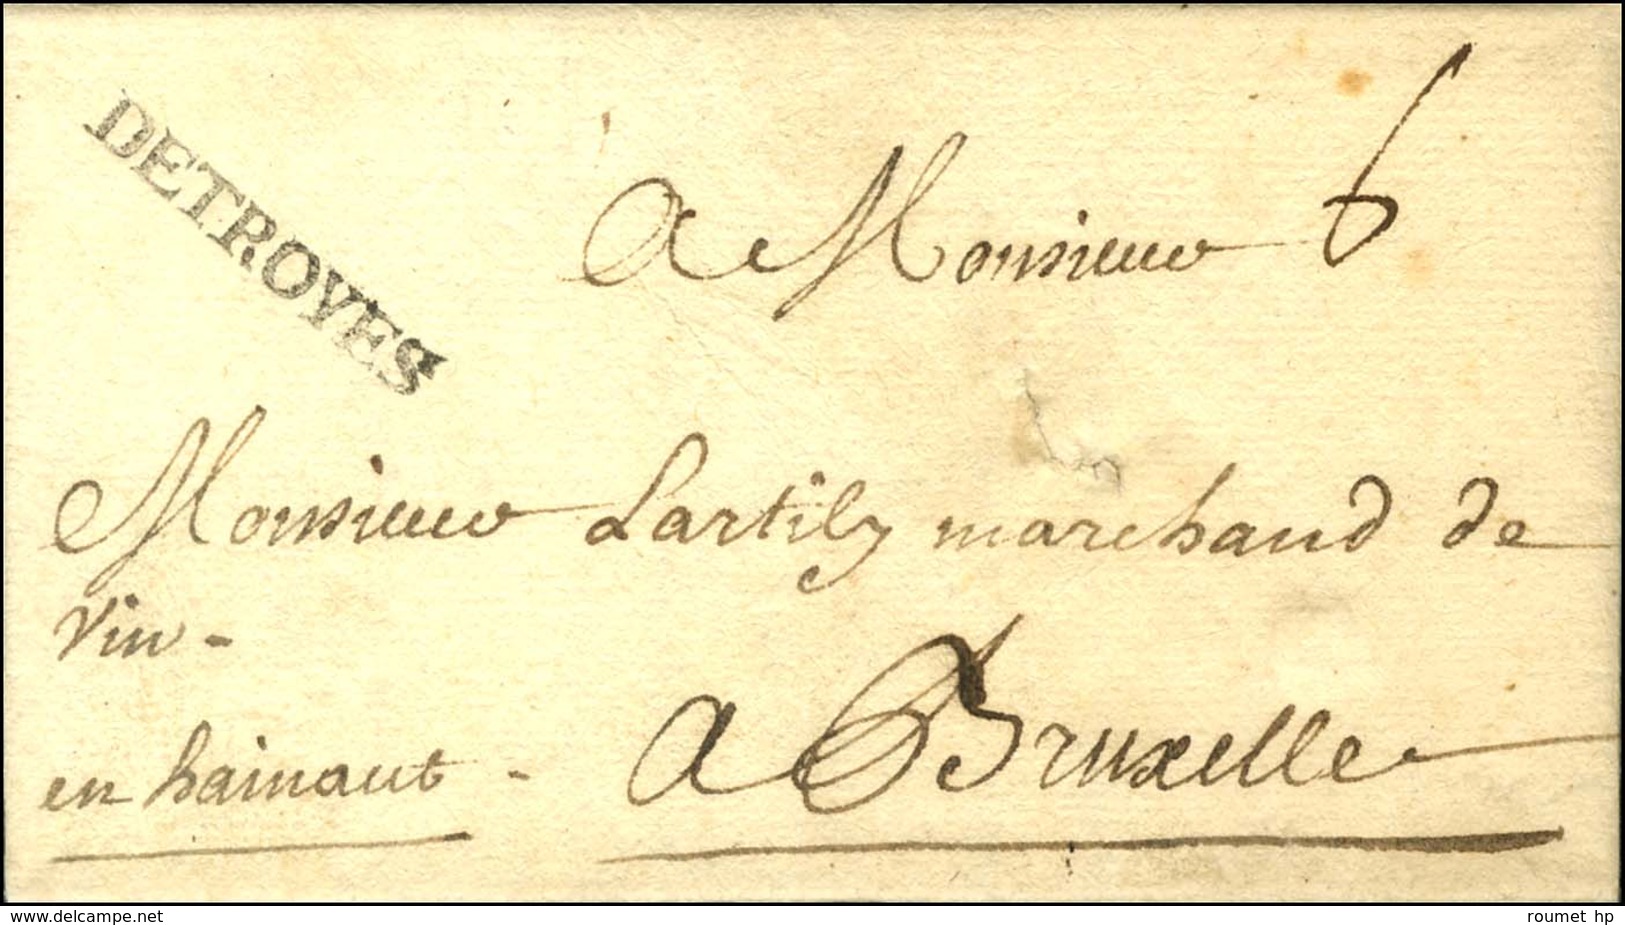 DETROYES
6
a Monsieur
Monsieur Lartily marchand de
vin -
en hainaut - a Bruxelle
delcampe.net
roumet hp